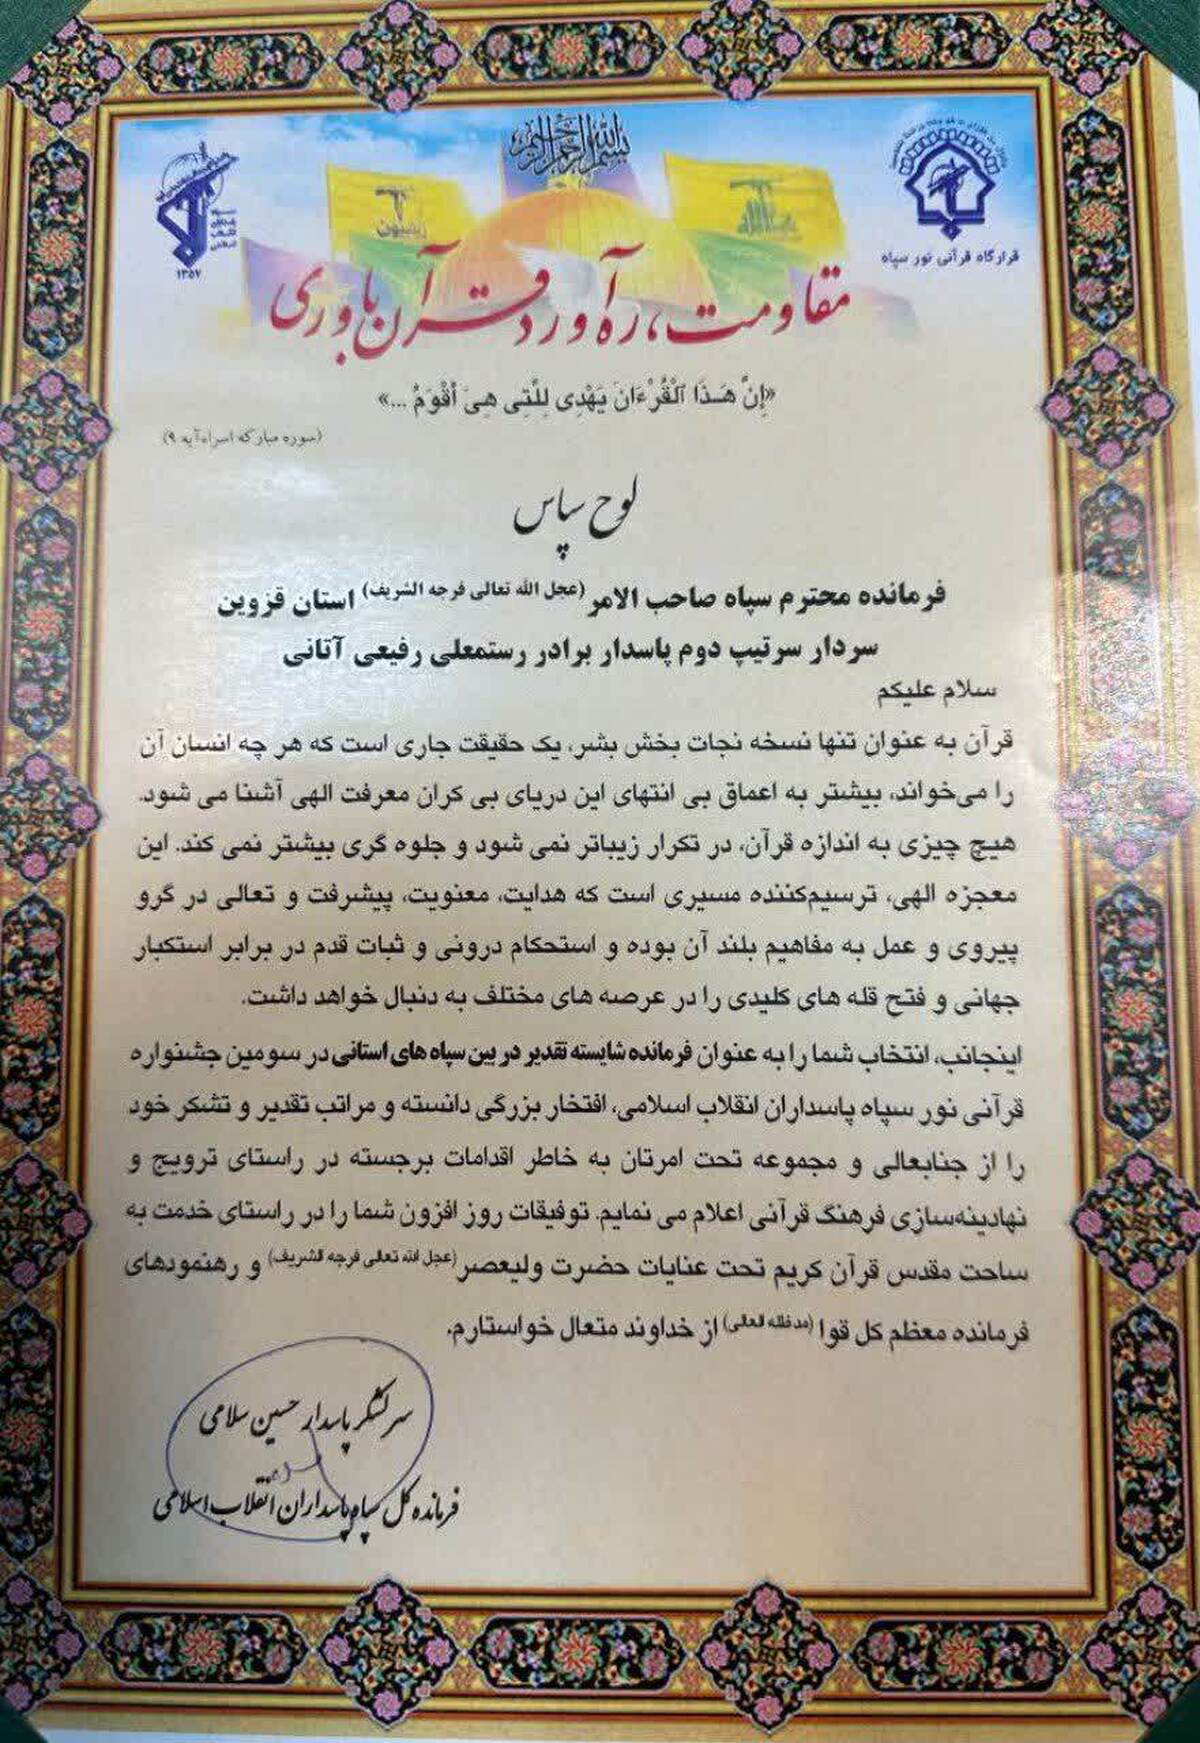 بسم الله الرحمن الرحیم
سپاه پاسداران انقلاب اسلامی
۱۳۵۷
قرارگاه قرآنی نور سپاه
مقاومت، ره‌آورد قرآن باوری
«إِنَّ هَـٰذَا ٱلْقُرْءَانَ یَهْدِی لِلَّتِی هِیَ أَقْوَمُ ...»
(سوره مبارکه اسراء آیه ۹)
لوح سپاس
فرمانده محترم سپاه صاحب الامر (عجل الله تعالی فرجه الشریف) استان قزوین
سردار سرتیپ دوم پاسدار برادر رستمعلی رفیعی آتانی
سلام علیکم
قرآن به عنوان تنها نسخه نجات بخش بشر، یک حقیقت جاری است که هر چه انسان آن
را می‌خواند، بیشتر به اعماق بی انتهای این دریای بی کران معرفت الهی آشنا می شود.
هیچ چیزی به اندازه قرآن، در تکرار زیباتر نمی شود و جلوه گری بیشتر نمی کند. این
معجزه الهی، ترسیم‌کننده مسیری است که هدایت، معنویت، پیشرفت و تعالی در گرو
پیروی و عمل به مفاهیم بلند آن بوده و استحکام درونی و ثبات قدم در برابر استکبار
جهانی و فتح قله های کلیدی را در عرصه های مختلف به دنبال خواهد داشت.
اینجانب، انتخاب شما را به عنوان فرمانده شایسته تقدیر در بین سپاه های استانی در سومین جشنواره
قرآنی نور سپاه پاسداران انقلاب اسلامی، افتخار بزرگی دانسته و مراتب تقدیر و تشکر خود
را از جنابعالی و مجموعه تحت امرتان به خاطر اقدامات برجسته در راستای ترویج و
نهادینه‌سازی فرهنگ قرآنی اعلام می نمایم. توفیقات روز افزون شما را در راستای خدمت به
ساحت مقدس قرآن کریم تحت عنایات حضرت ولیعصر (عجل الله تعالی فرجه الشریف) و رهنمودهای
فرمانده معظم کل قوا (مدظله العالی) از خداوند متعال خواستارم.
سرلشکر پاسدار حسین سلامی
فرمانده کل سپاه پاسداران انقلاب اسلامی